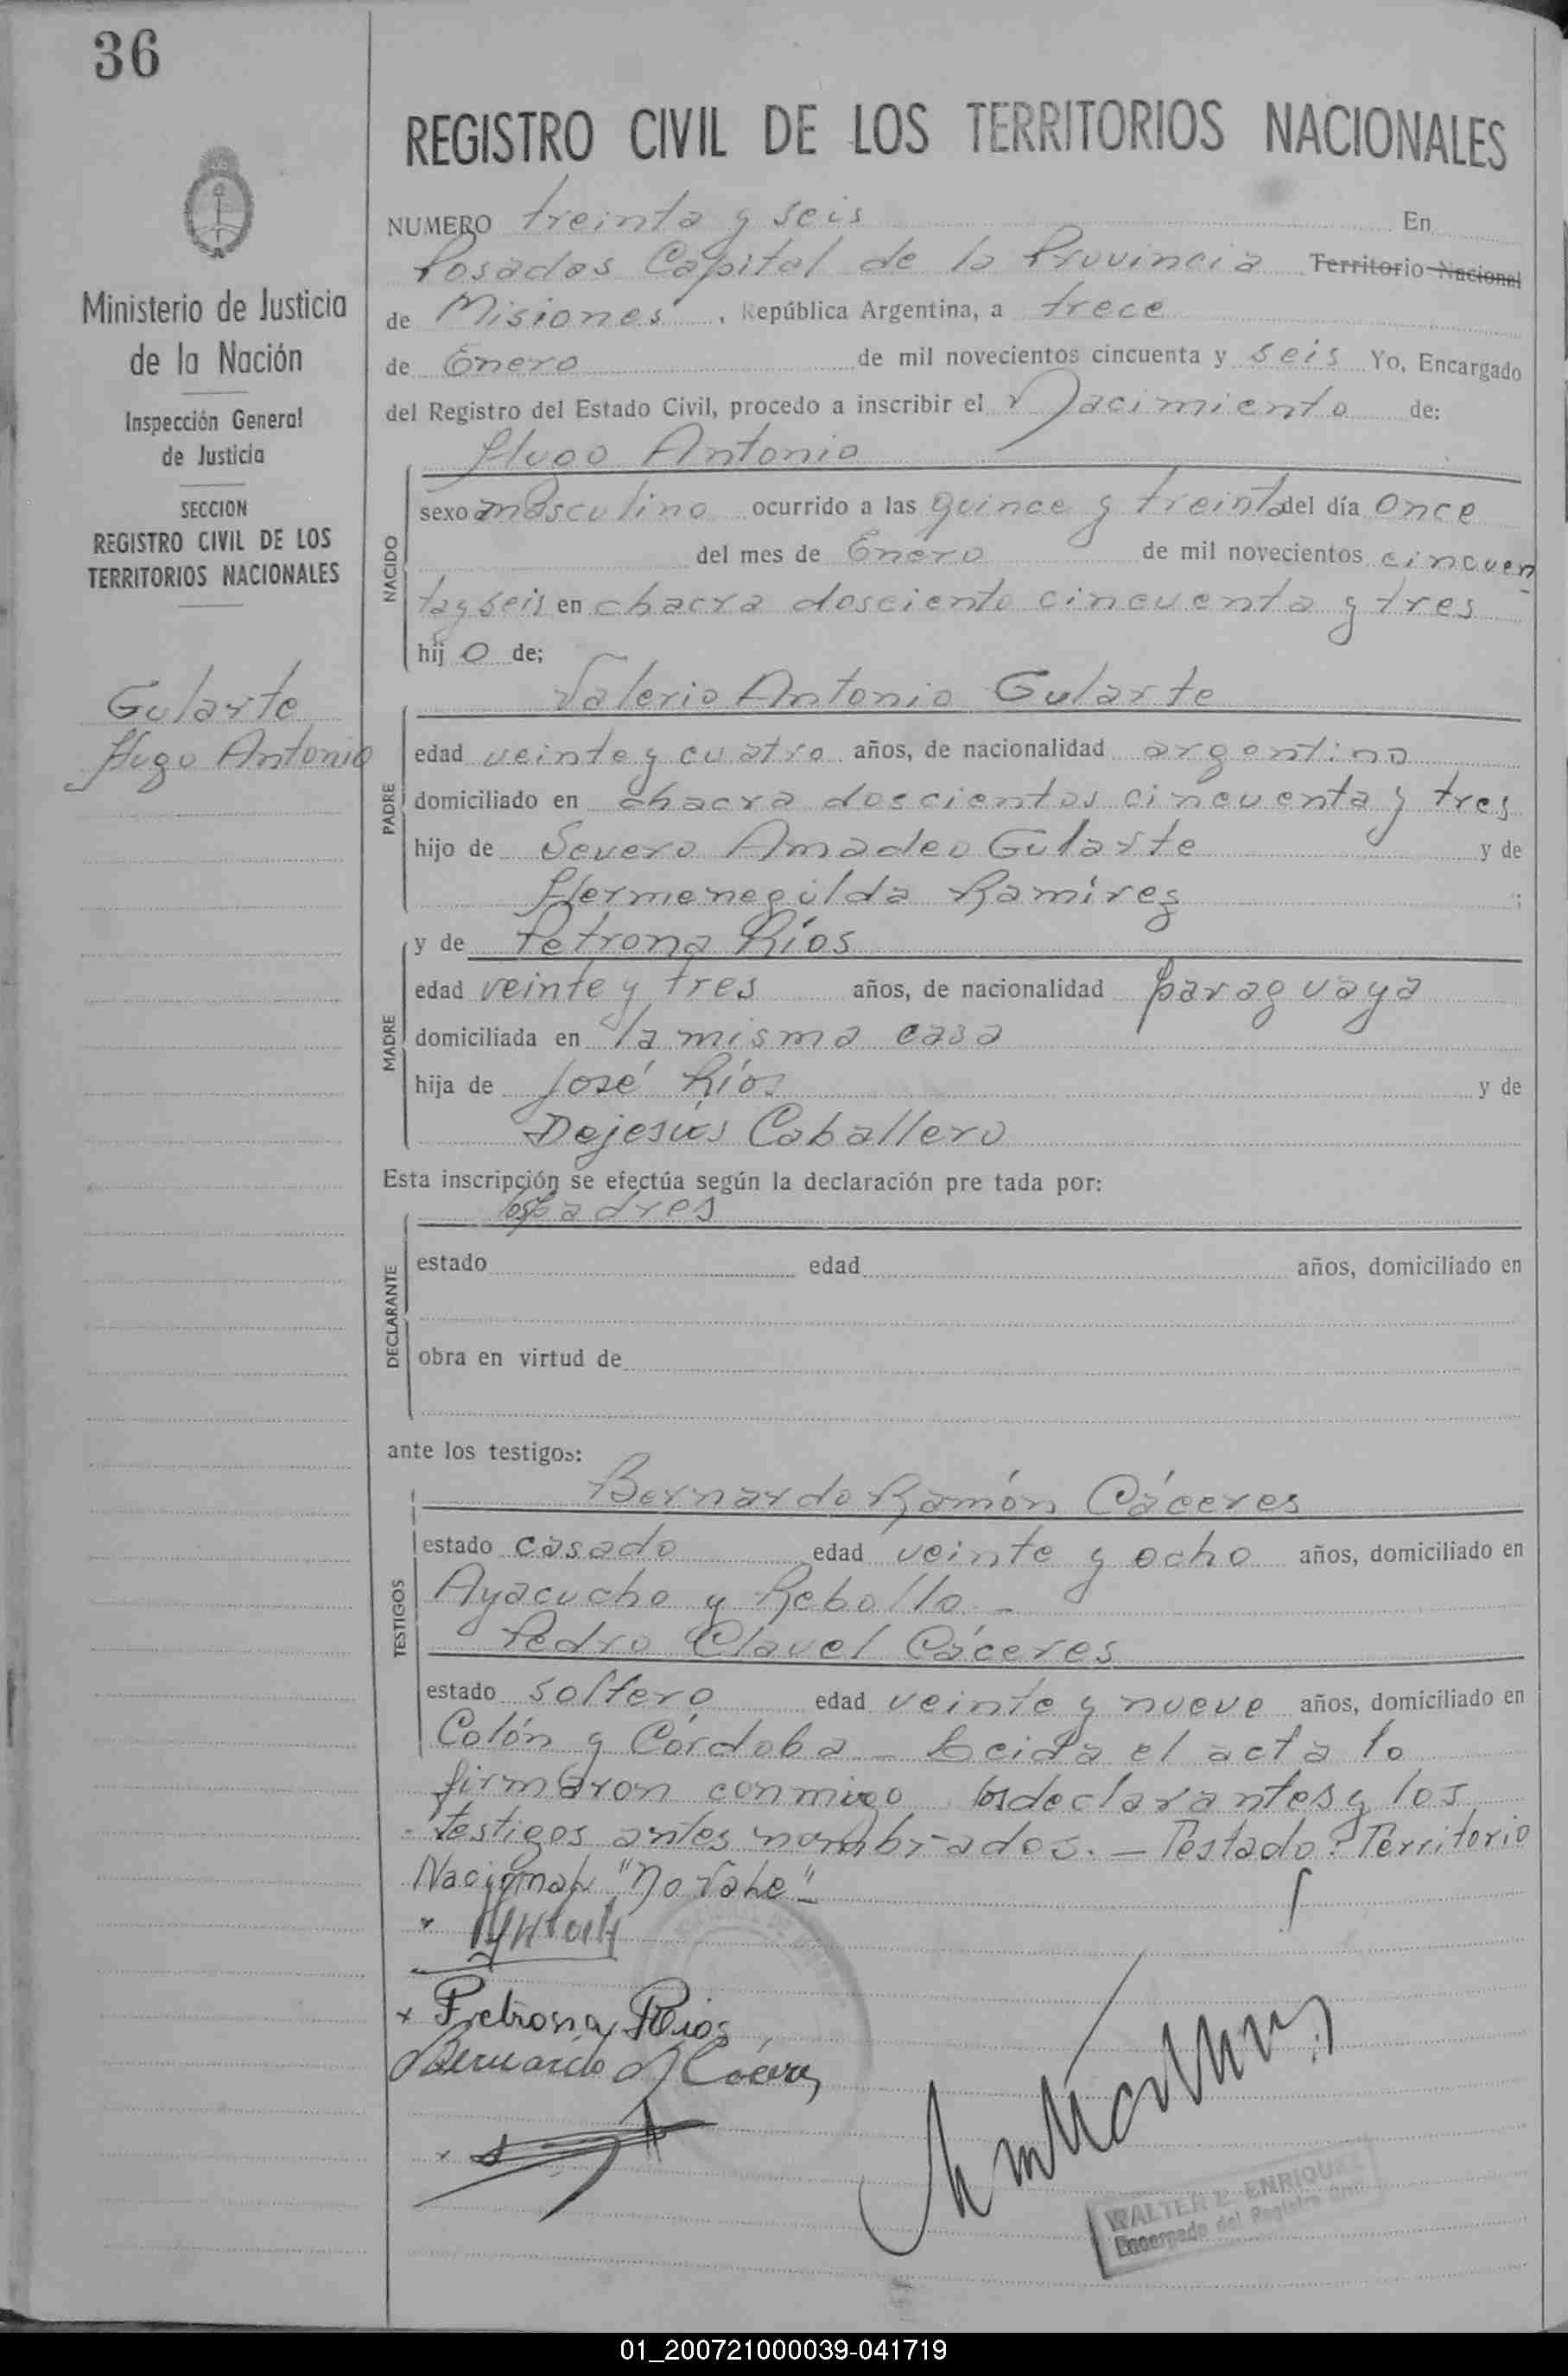 36
REGISTRO CIVIL DE LOS TERRITORIOS NACIONALES
NUMERO treinta y seis En
Posadas Capital de la Provincia Territorio Nacional
de Misiones, República Argentina, a trece
de Enero de mil novecientos cincuenta y seis Yo, Encargado
del Registro del Estado Civil, procedo a inscribir el Nacimiento de:
Hugo Antonio
NACIDO
sexo masculino ocurrido a las quince y treinta del día once
del mes de Enero de mil novecientos cincuen
ta y seis en chacra dosciento cincuenta y tres
hij o de;
Ministerio de Justicia
de la Nación
Inspección General
de Justicia
SECCION
REGISTRO CIVIL DE LOS
TERRITORIOS NACIONALES
Gularte
Hugo Antonio
Valerio Antonio Gularte
PADRE
edad veinte y cuatro años, de nacionalidad argentino
domiciliado en chacra doscientos cincuenta y tres
hijo de Severo Amadeo Gularte y de
Hermenegilda Ramírez ;
MADRE
y de Petrona Ríos
edad veinte y tres años, de nacionalidad paraguaya
domiciliada en la misma casa
hija de José Ríos y de
Dejesús Caballero
Esta inscripción se efectúa según la declaración pre tada por:
los padres
DECLARANTE
estado edad años, domiciliado en
obra en virtud de
ante los testigos:
Bernardo Ramón Cáceres
TESTIGOS
estado casado edad veinte y ocho años, domiciliado en
Ayacucho y Rebollo -
Pedro Clavel Cáceres
estado soltero edad veinte y nueve años, domiciliado en
Colón y Córdoba - Leida el acta lo
firmaron conmigo los declarantes y los
testigos antes nombrados. - Testado: Territorio
Nacional "No Vale"
x Petrona Rios
Bernardo R Cáceres
WALTER E. ENRIQUEZ
Encargado del Registro Civil
01_200721000039-041719